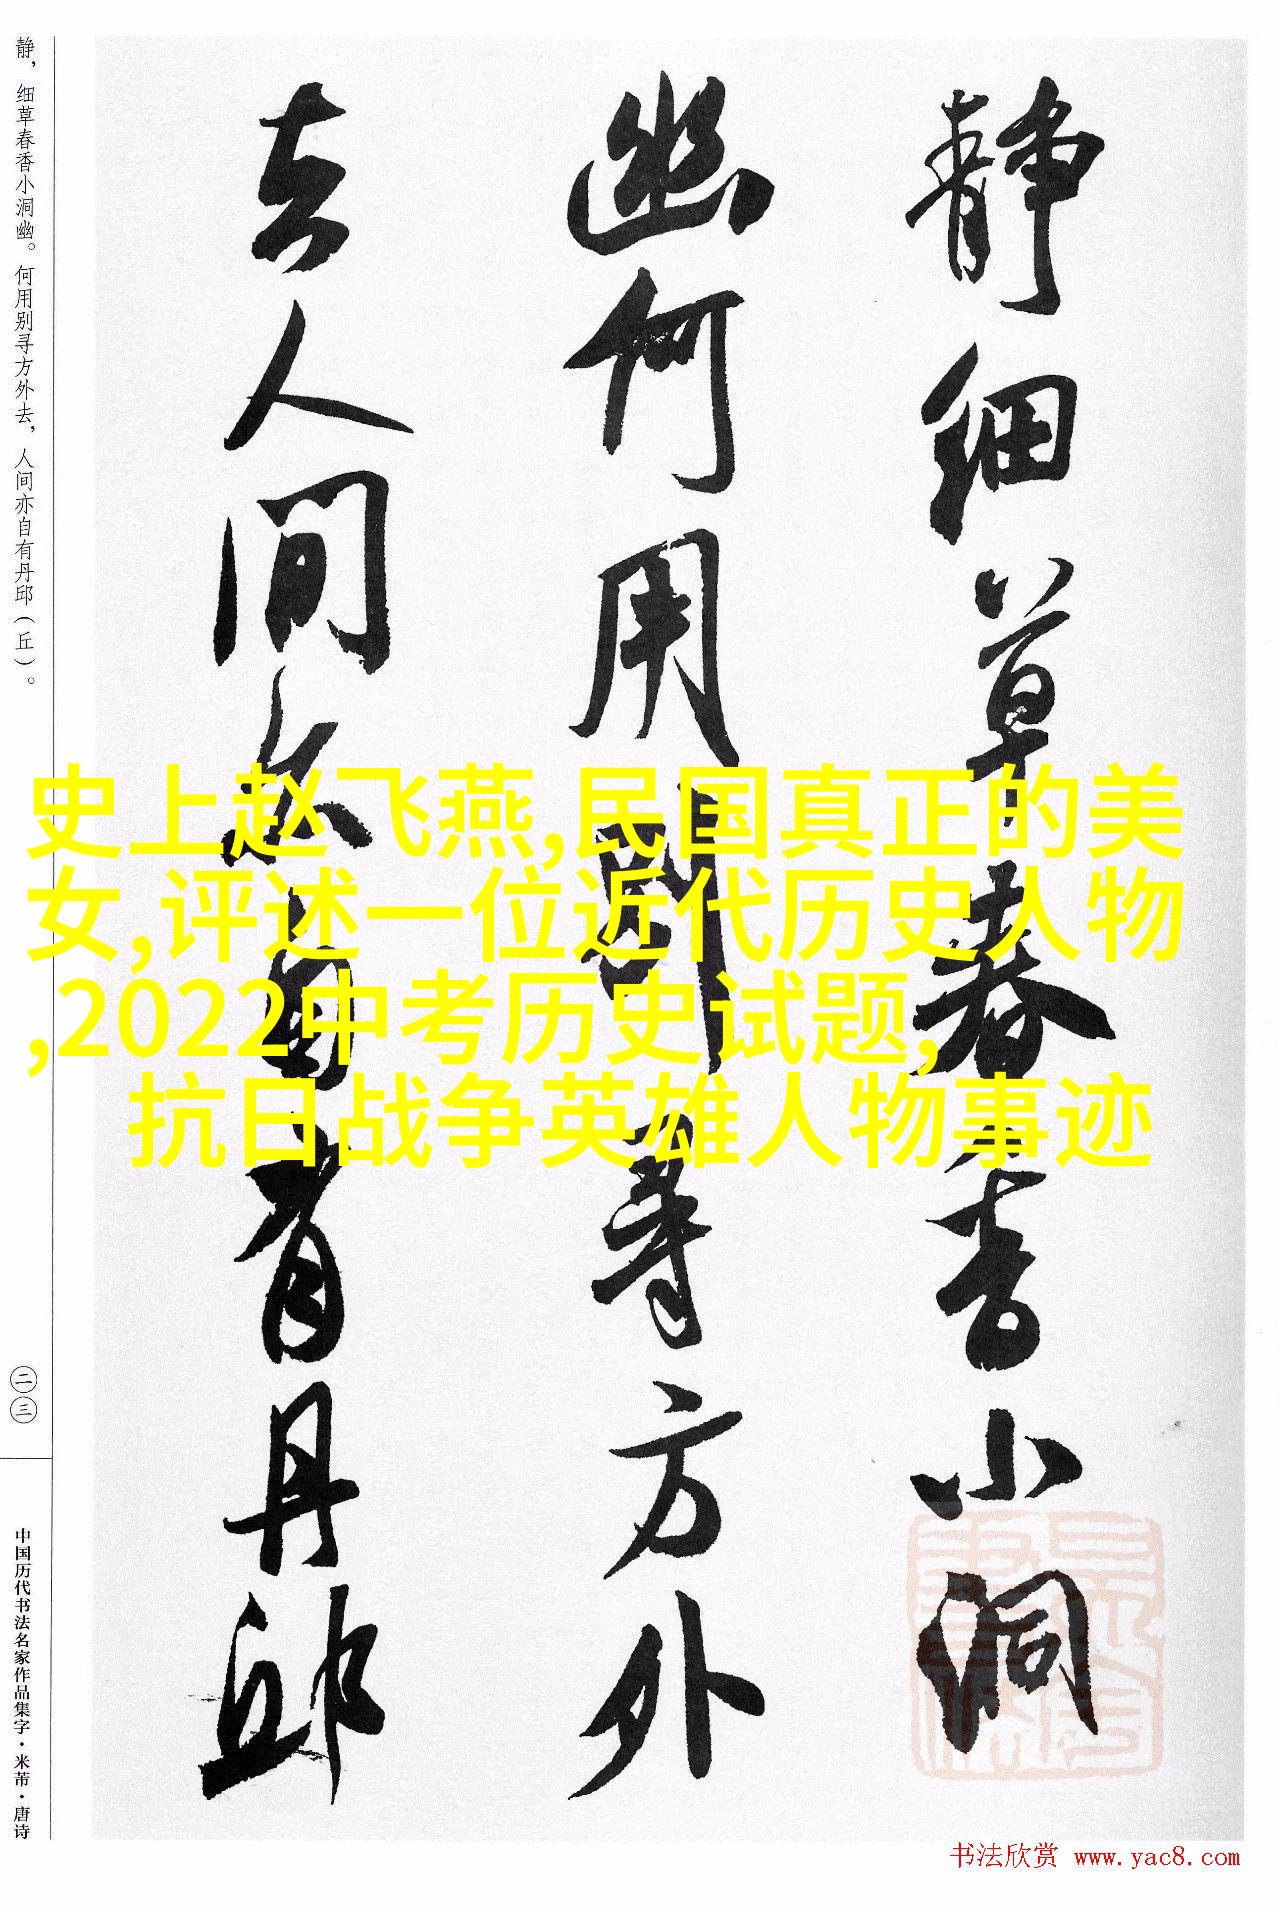 静细草春香小洞
幽何用别寻方外
去人间亦自有丹邱
静，细草春香小洞幽。何用别寻方外去，人间亦自有丹邱（丘）。
二三
中国历代书法名家作品集字·米芾·唐诗
史上赵飞燕,民国真正的美
女,评述一位近代历史人物
,2022中考历史试题,
抗日战争英雄人物事迹
书法欣赏 www.yac8.com